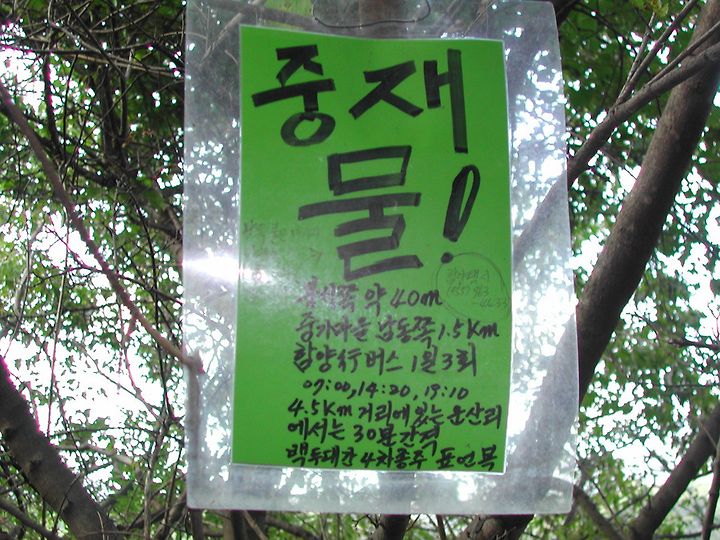 중재
물!
약 40m
중기마을 남동쪽 1.5Km
함양行 버스 1일 3회
07:00, 14:20, 19:10
4.5Km 거리에 있는 운산리
에서는 30분 간격
백두대간 4차종주 표언복